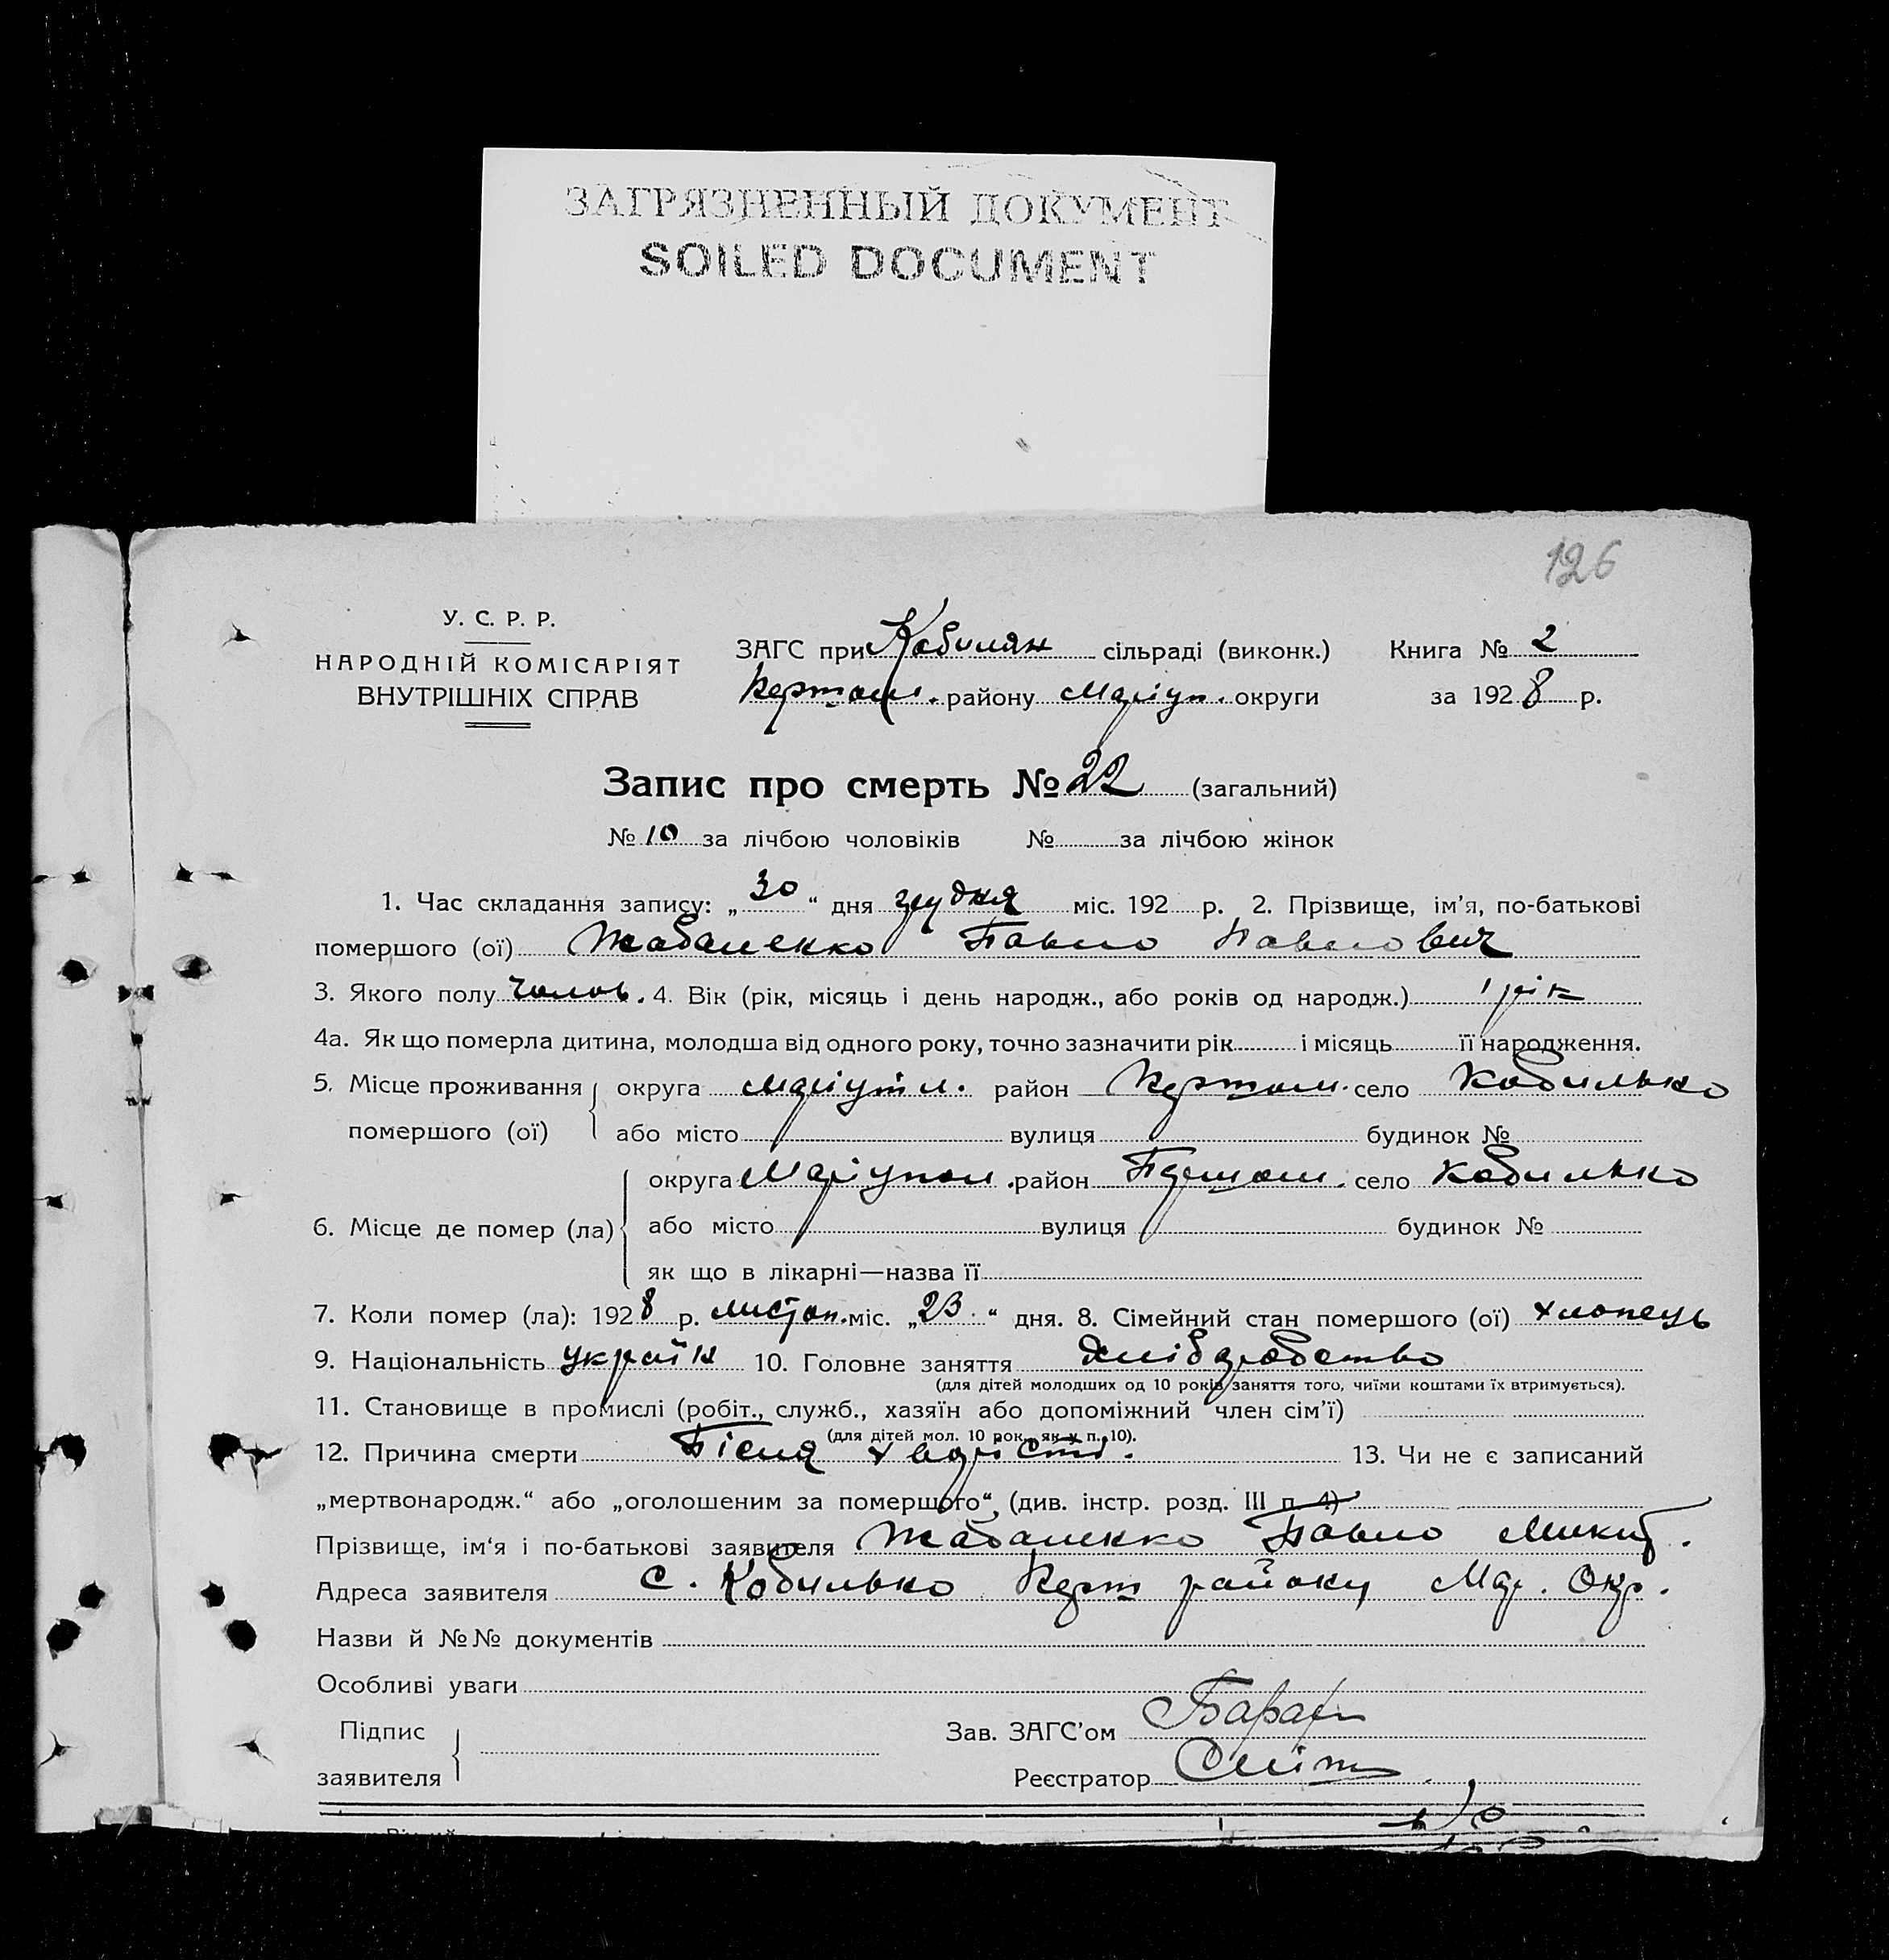 ЗАГРЯЗНЕННЫЙ ДОКУМЕНТ
SOILED DOCUMENT
126
У. С. Р. Р.
НАРОДНІЙ КОМІСАРІЯТ
ВНУТРІШНІХ СПРАВ
ЗАГС при Кобилян сільраді (виконк.) Книга № 2
району Маріуп. округи за 1928 р.
Запис про смерть № 22 (загальний)
№ 10 за лічбою чоловіків № за лічбою жінок
1. Час складання запису: „30“ дня грудня міс. 192 р. 2. Прізвище, ім’я, по-батькові
помершого (ої) Жабаленко Павло Павлович
3. Якого полу чолов. 4. Вік (рік, місяць і день народж., або років од народж.) 1 рік
4а. Як що померла дитина, молодша від одного року, точно зазначити рік і місяць її народження.
5. Місце проживання помершого (ої) округа Маріупіл. район село Кобилько
або місто вулиця будинок №
6. Місце де помер (ла) округа Маріупол. район село Кобилько
або місто вулиця будинок №
як що в лікарні—назва її
7. Коли помер (ла): 1928 р. листоп. міс. „23“ дня. 8. Сімейний стан помершого (ої) хлопець
9. Національність україн 10. Головне заняття хліборобство
(для дітей молодших од 10 років заняття того, чиїми коштами їх втримується).
11. Становище в промислі (робіт., служб., хазяїн або допоміжний член сім’ї)
(для дітей мол. 10 рок., як у п. 10).
12. Причина смерти Післа хворісті. 13. Чи не є записаний
„мертвонародж.“ або „оголошеним за помершого“, (див. інстр. розд. III п. 4)
Прізвище, ім‘я і по-батькові заявителя Жабаленко Павло Микит.
Адреса заявителя с. Кобилько району Мар. Окр.
Назви й №№ документів
Особливі уваги
Підпис заявителя
Зав. ЗАГС’ом
Реєстратор